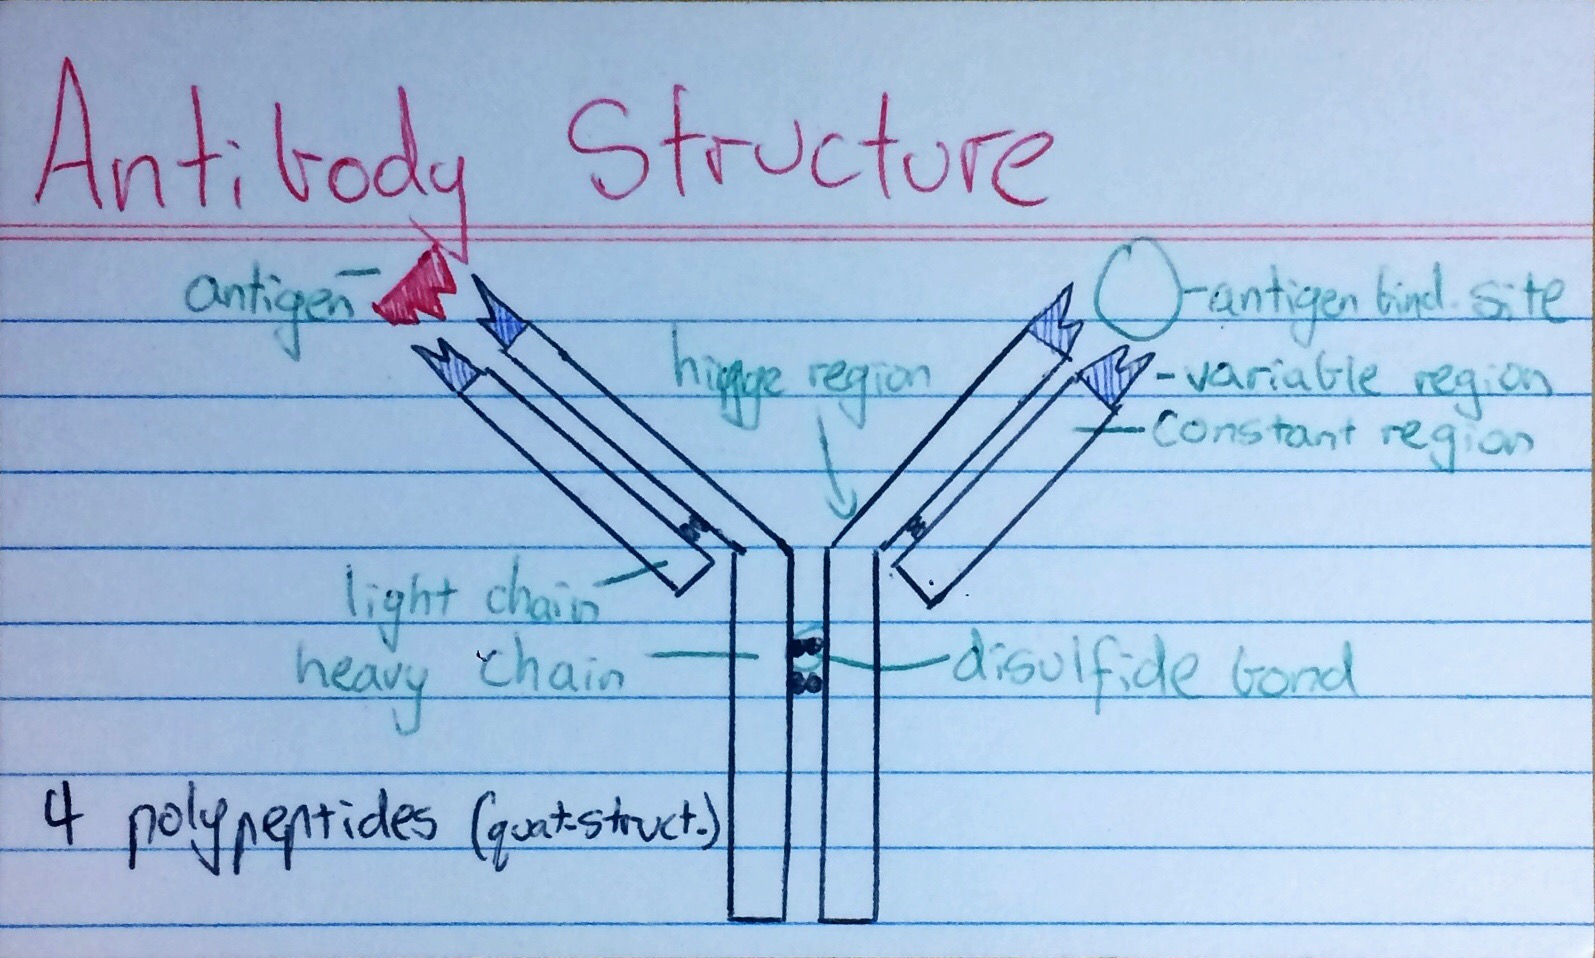 Antibody Structure
antigen
-antigen bind. site
hinge region
-variable region
constant region
light chain
heavy chain
disulfide bond
4 polypeptides (quat. struct.)